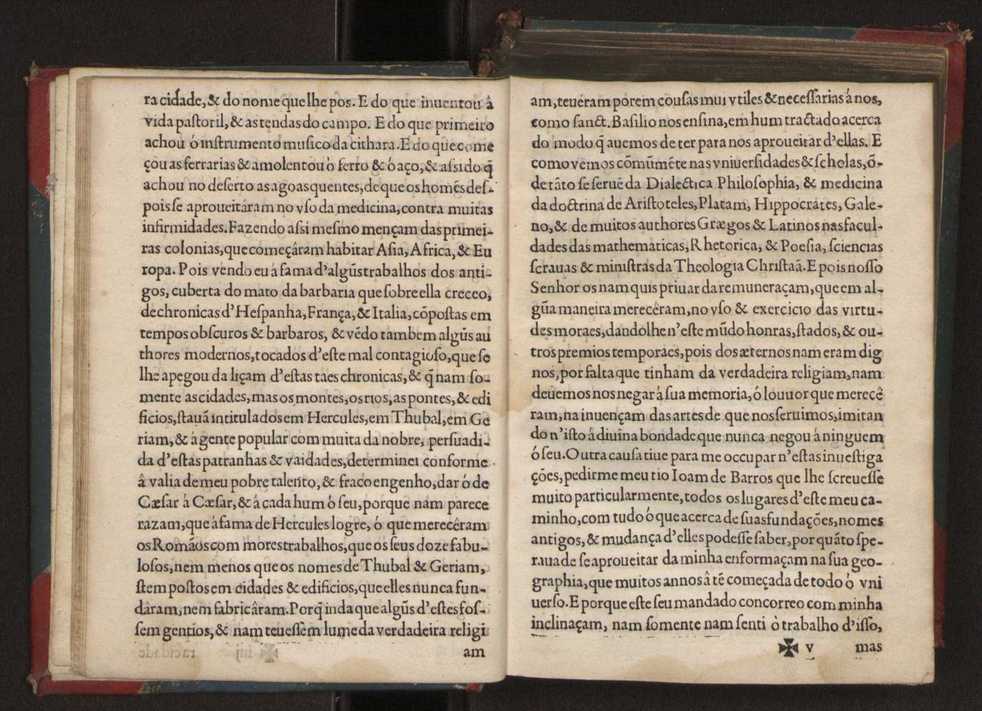 ra cidade, & do nome que lhe pòs. E do que inuentou â
vida pastoril, & as tendas do campo. E do que primeiro
achou ò instrumento musico da cithara. E do que come
çou as ferrarias & amolentou ò ferro & ò aço, & assi do q̃
achou no deserto as agoas quentes, de que os homẽs des-
pois se aproueitaram no vso da medicina, contra muitas
infirmidades. Fazendo assi mesmo mençam das primei-
ras colonias, que começâram habitar Asia, Africa, & Eu
ropa. Pois vendo eu à fama d'algũs trabalhos dos anti-
gos, cuberta do mato da barbaria que sobre ella creceo,
de chronicas d'Hespanha, França, & Italia, cõpostas em
tempos obscuros & barbaros, & vẽdo tambem algũs au
thores modernos, tocados d'este mal contagioso, que se
lhe apegou da liçam d'estas taes chronicas, & q̃ nam so-
mente as cidades, mas os montes, os rios, as pontes, & edi
ficios, stauã intitulados em Hercules, em Thubal, em Ge
riam, & à gente popular com muita da nobre, persuadi-
da d'estas patranhas & vaidades, determinei conforme
â valia de meu pobre talento, & fraco engenho, dar ò de
Cæsar à Cæsar, & à cada hum ò seu, porque nam parece
razam, que à fama de Hercules logre, ò que merecêram
os Romãos com mores trabalhos, que os seus doze fabu-
losos, nem menos que os nomes de Thubal & Geriam,
stem postos em cidades & edificios, que elles nunca fun-
dâram, nem fabricâram. Porq̃ inda que algũs d'estes fos-
sem gentios, & nam teuessem lume da verdadeira religi
am
am, teueram porem cousas mui vtiles & necessarias á nos,
como sanct. Basilio nos ensina, em hum tractado acerca
do modo q̃ auemos de ter para nos aproueitar d'ellas. E
como vemos cõmũmẽte nas vniuersidades & scholas, õ-
de tãto se serue da Dialectica Philosophia, & medicina
da doctrina de Aristoteles, Platam, Hippocrates, Gale-
no, & de muitos authores Græegos & Latinos nas facul-
dades das mathematicas, Rhetorica, & Poesia, sciencias
scrauas & ministras da Theologia Christaã. E pois nosso
Senhor os nam quis priuar da remuneraçam, que em al-
gũa maneira merecêram, no vso & exercicio das virtu-
des moraes, dandolhe n'este mũdo honras, stados, & ou-
tros premios temporaes, pois dos æternos nam eram dig
nos, por falta que tinham da verdadeira religiam, nam
deuemos nos negar à sua memoria, ò louuor que merecê
ram, na inuençam das artes de que nos seruimos, imitan
do n'isto à diuina bondade que nunca negou à ninguem
ò seu. Outra causa tiue para me occupar n'estas inuestiga
ções, pedirme meu tio Ioam de Barros que lhe screuesse
muito particularmente, todos os lugares d'este meu ca-
minho, com tudo ò que acerca de suas fundações, nomes
antigos, & mudança d'elles podesse saber, por quãto spe-
raua de se aproueitar da minha enformaçam na sua geo-
graphia, que muitos annos à tẽ começada de todo ò vni
uerso. E porque este seu mandado concorreo com minha
inclinaçam, nam somente nam senti ò trabalho d'isso,
✠ v mas